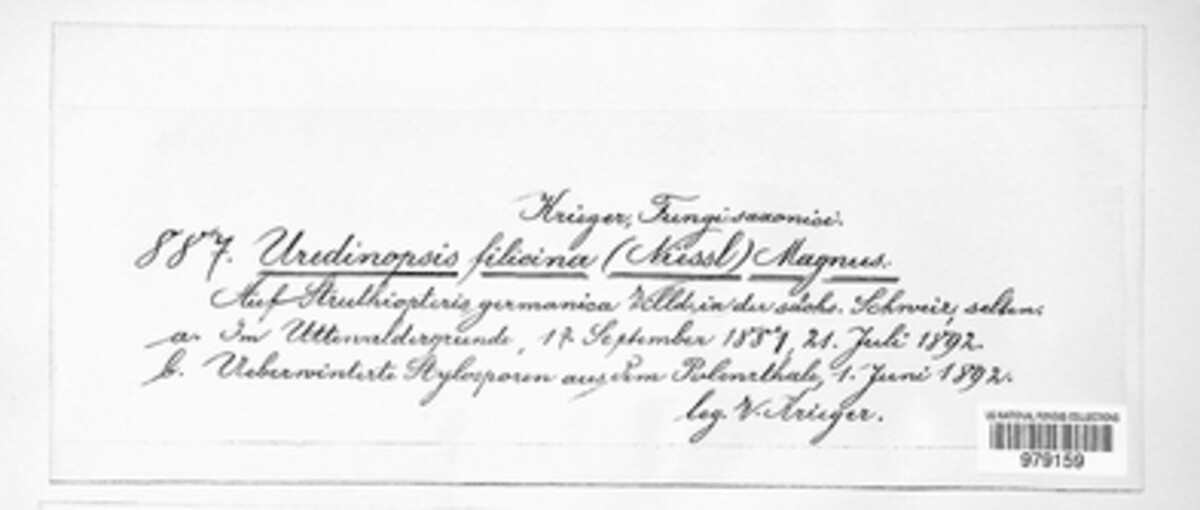 Krieger, Fungi saxonici.
887. Uredinopsis filicina (Niessl) Magnus.
Auf Struthiopteris germanica Willd. in der sächs. Schweiz, selten.
a. Im Uttewaldergrunde, 17. September, 21. Juli 1892.
b. Ueberwinterte Stylosporen aus dem Polenzthale, 1. Juni 1892.
leg. W. Krieger.
US NATIONAL FUNGUS COLLECTIONS
979159